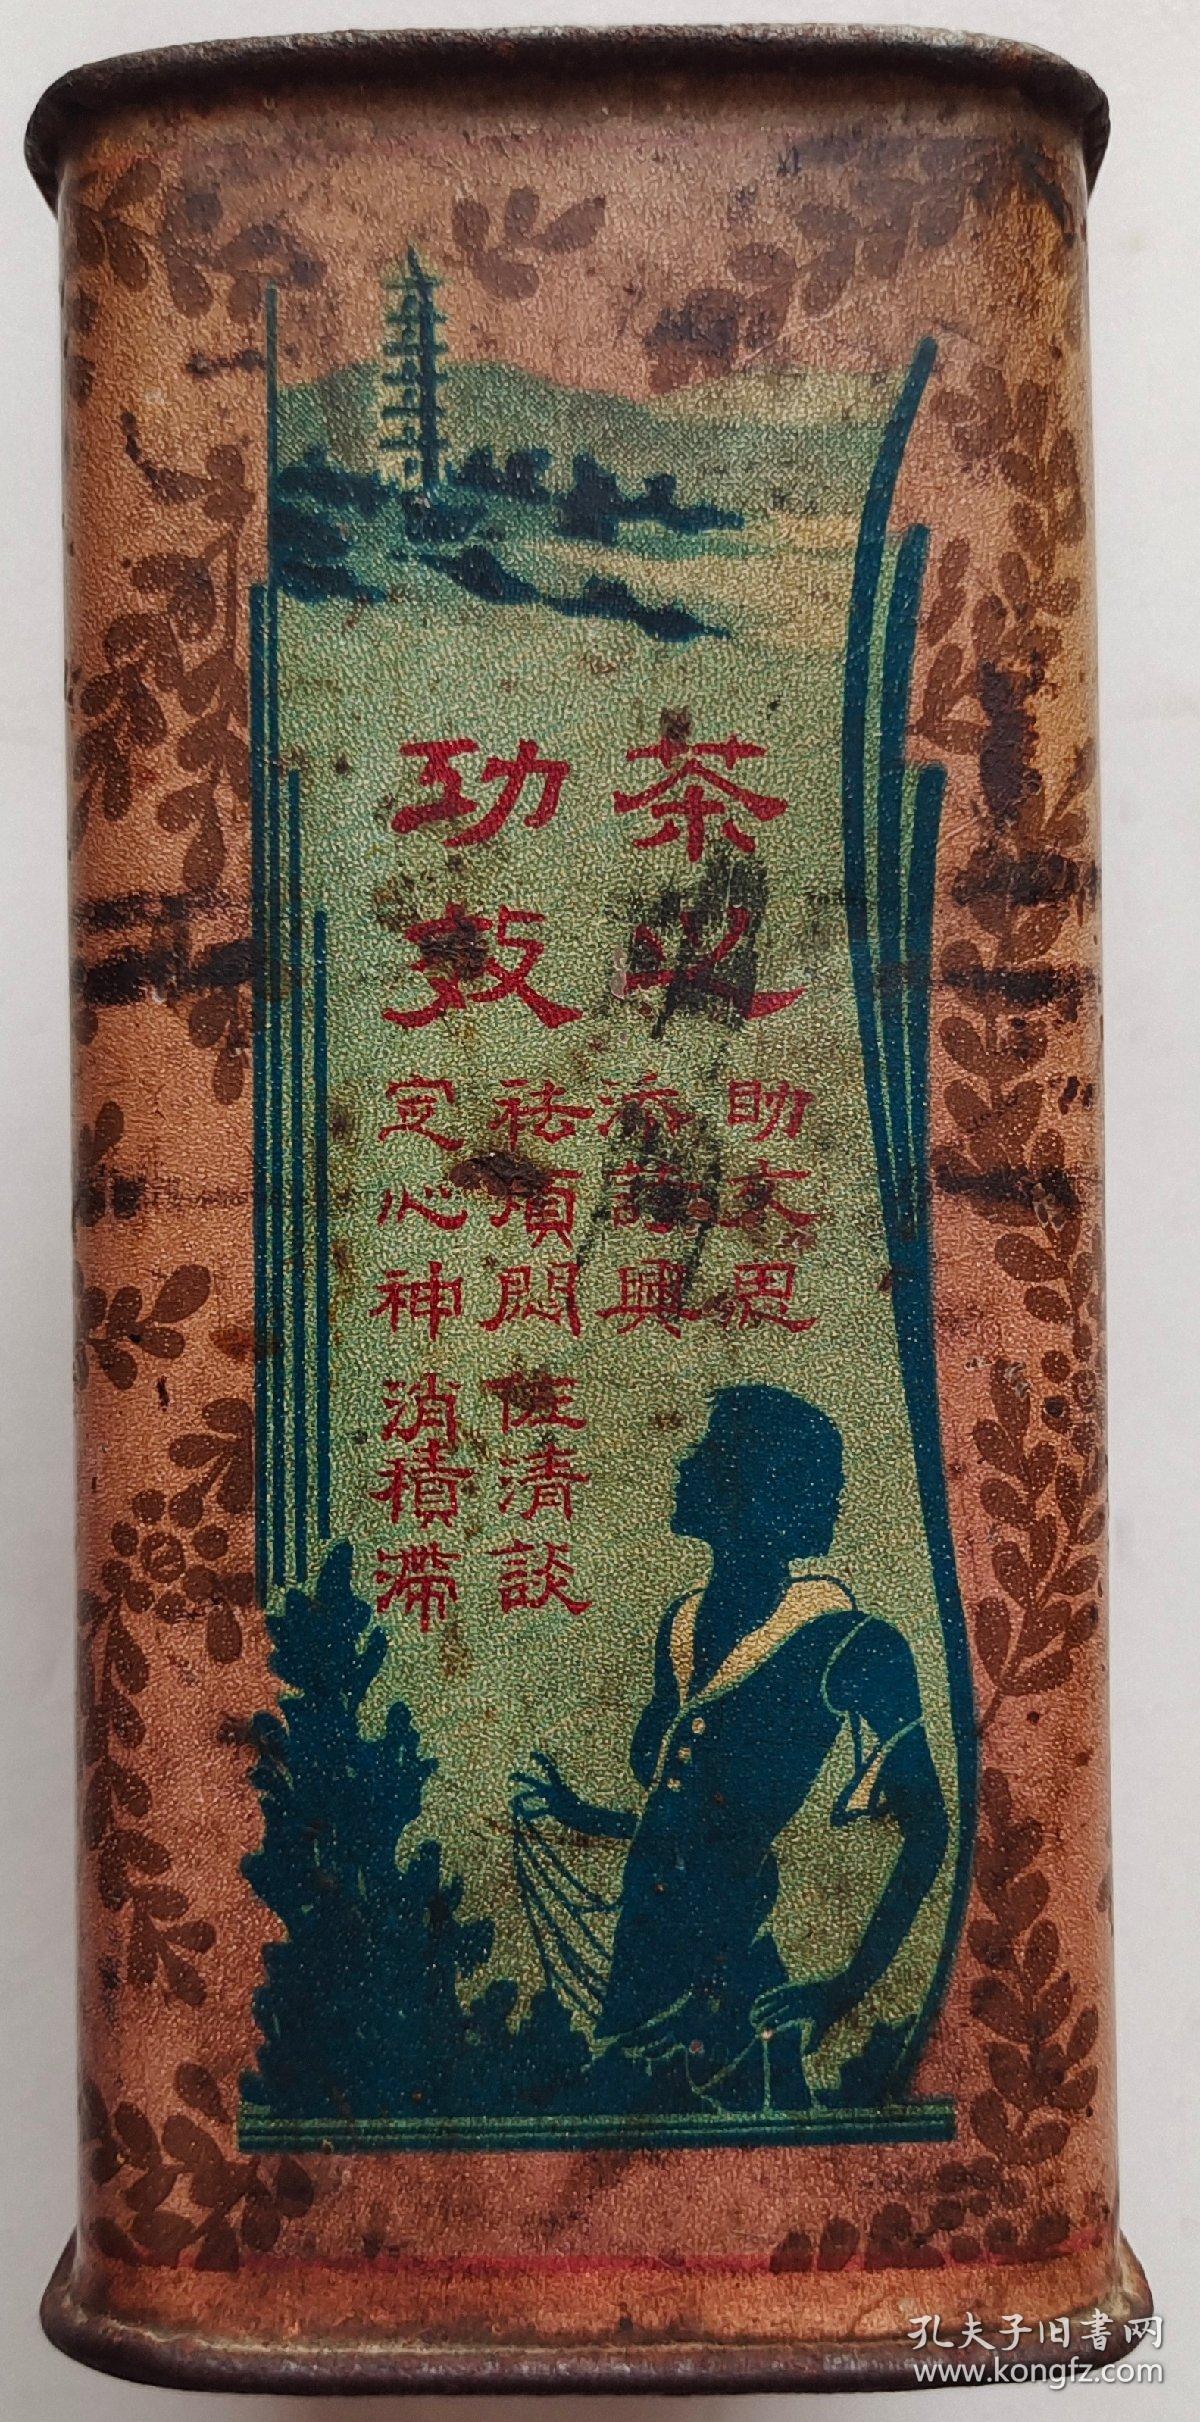 茶之
功效
助文思
添詩興
祛煩悶
佐清談
定心神
消積滯
孔夫子旧書网
www.kongfz.com